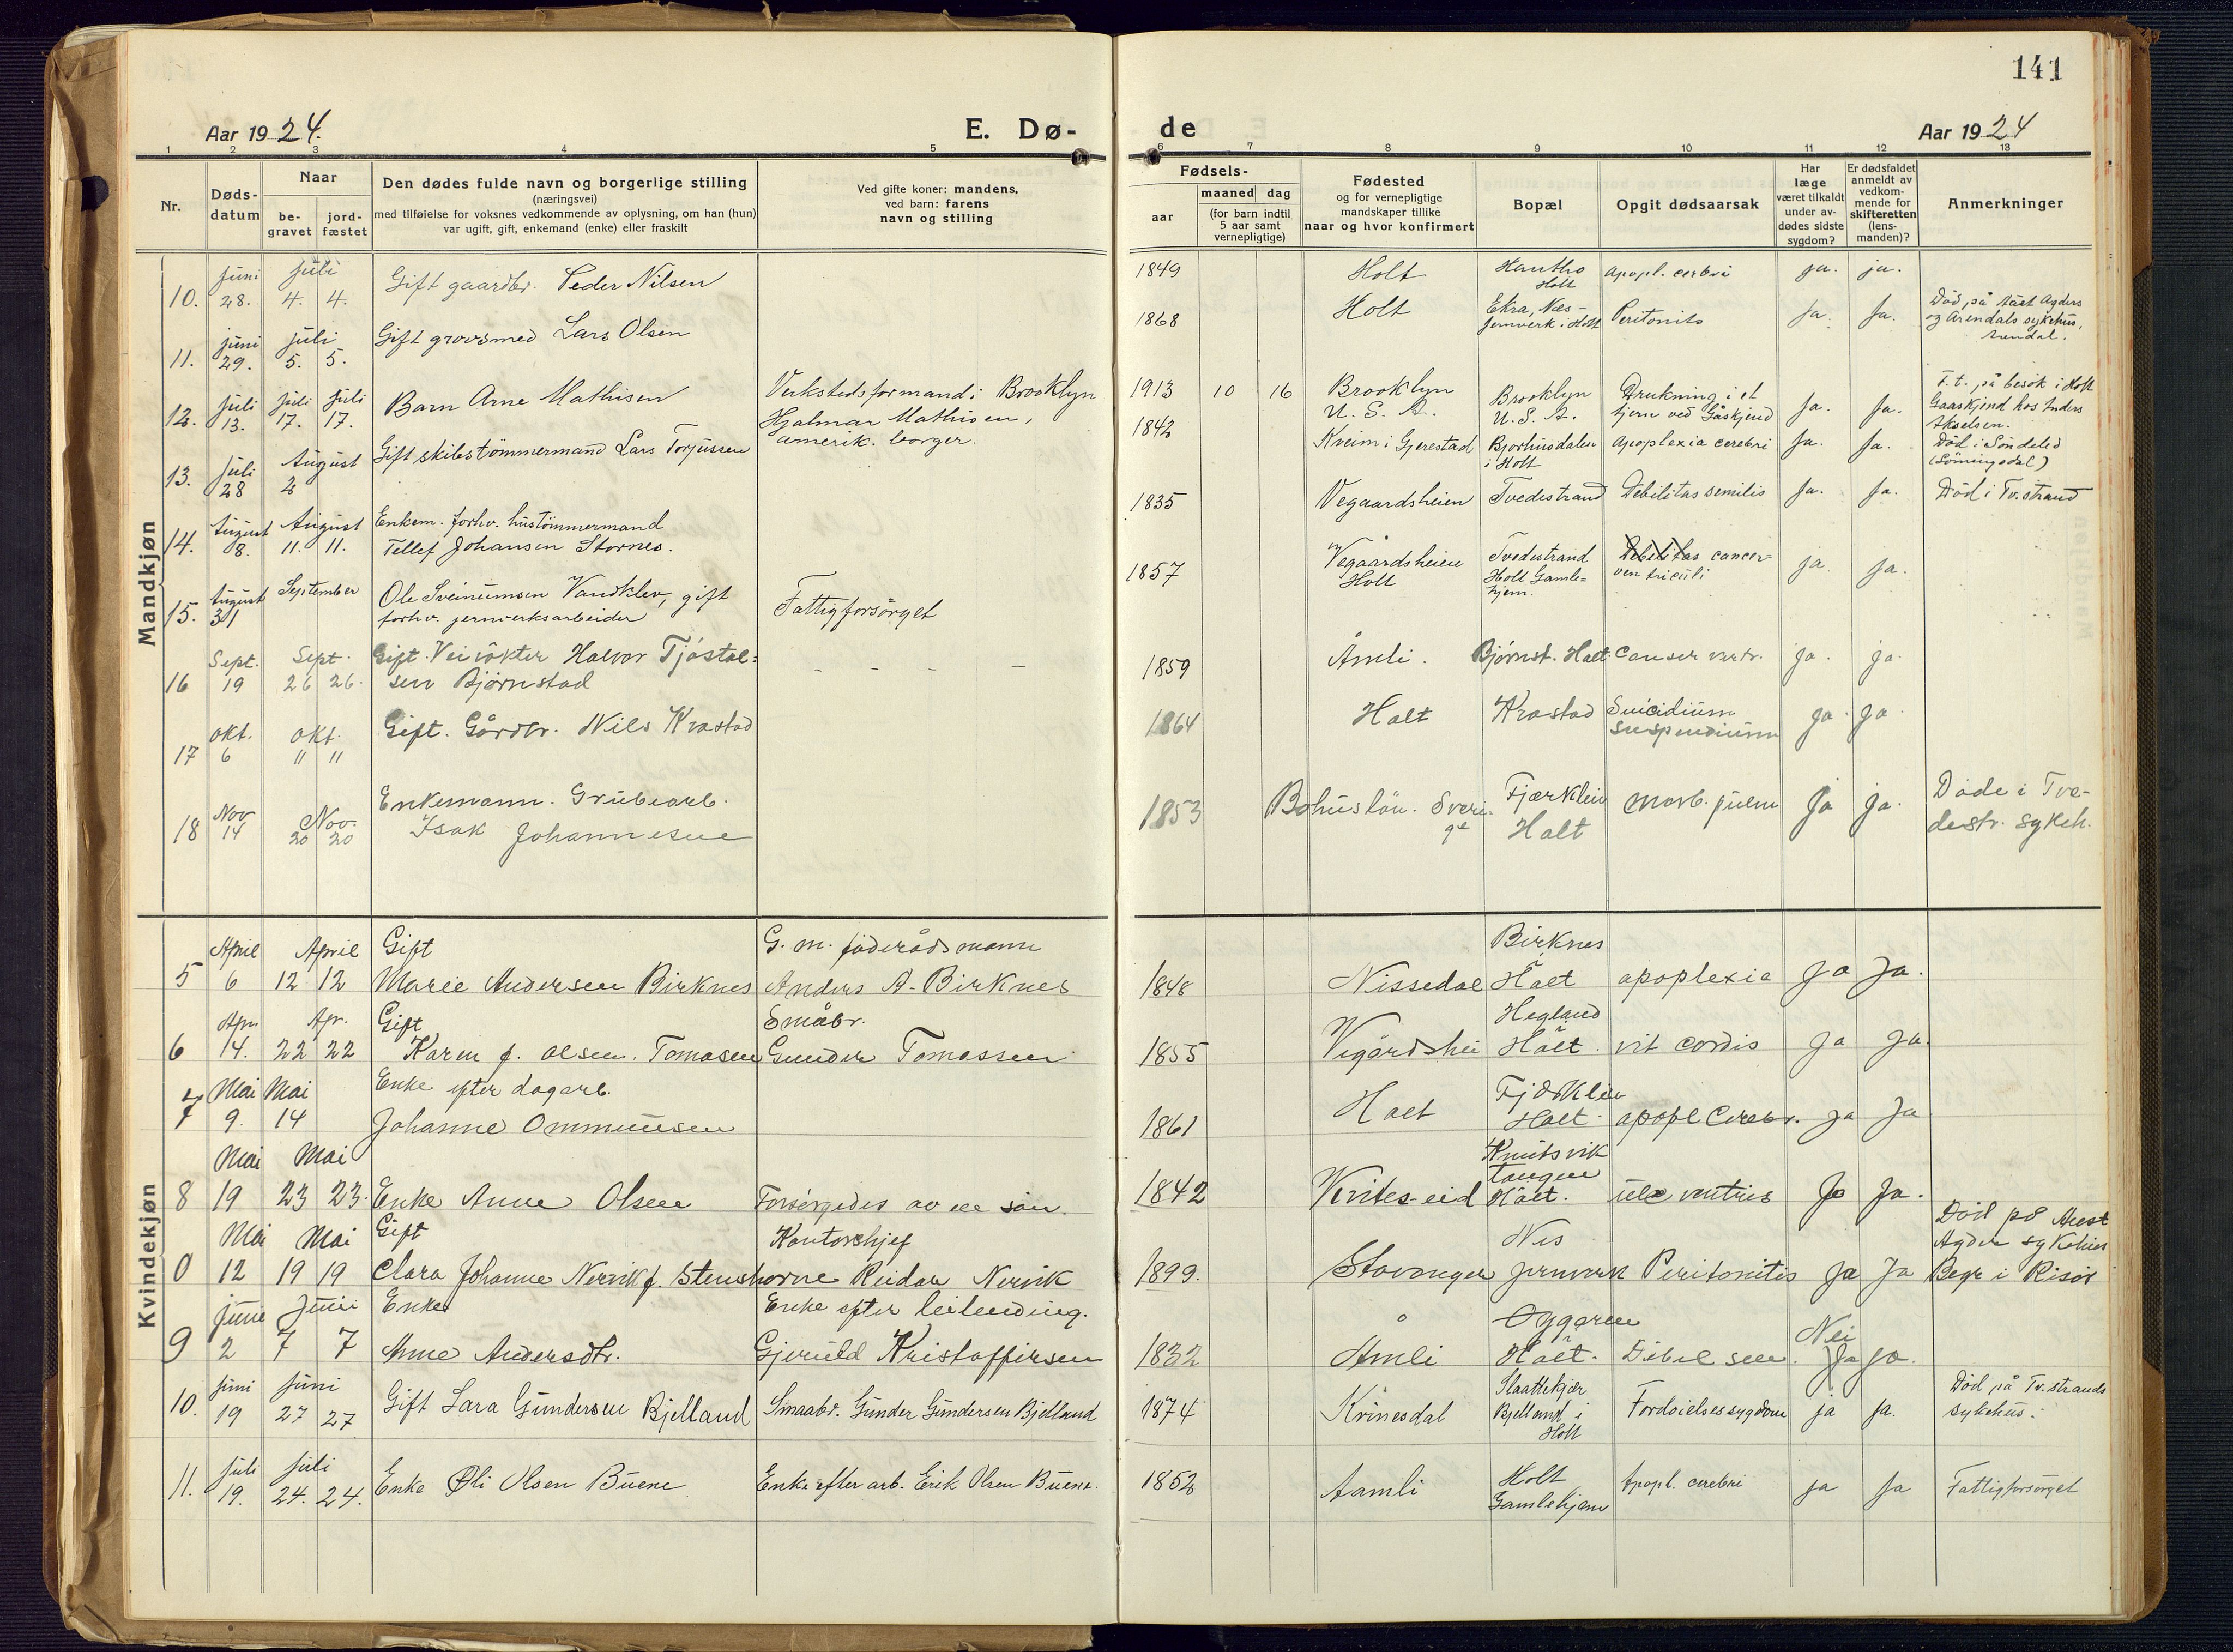 141
Aar 1924.
E. Dø-
de
Aar 1924
1 2 3 4 5 6 7 8 9 10 11 12 13
Nr.
Døds-
datum
Naar
be-
gravet
jord-
fæstet
Den dødes fulde navn og borgerlige stilling
(næringsvei)
med tilføielse for voksnes vedkommende av oplysning, om han (hun)
var ugift, gift, enkemand (enke) eller fraskilt
Ved gifte koner: mandens,
ved barn: farens
navn og stilling
Fødsels-
aar
maaned dag
(for barn indtil
5 aar samt
vernepligtige)
Fødested
og for vernepligtige
mandskaper tillike
naar og hvor konfirmert
Bopæl
Opgit dødsaarsak
Har
læge
været tilkaldt
under av-
dødes sidste
sygdom?
Er dødsfaldet
anmeldt av
vedkom-
mende for
skifteretten
(lens-
manden)?
Anmerkninger
Mandkjøn
10. Juni 28. Juli 4. 4. Gift gaardbr. Peder Nilsen 1849 Holt Hantho Holt Apopl. cerebri ja. ja.
11. Juni 29. Juli 5. 5. Gift grovsmed Lars Olsen 1868 Holt Ekra, Næs-
jernverk i Holt Peritonits Ja. Ja. Död på Aust Agders
og Arendals sykehus,
Arendal.
12. Juli 13. Juli 17. Juli 17. Barn Arne Mathisen Verkstedsformand i Brooklyn
Hjalmar Mathisen,
amerik. borger. 1913 10 16 Brooklyn
U. S. A. Brooklyn
U. S. A. Drukning i et
tjern ved Gåskjend Ja. Ja. F. t. på besök i Holt
Gaaskjend hos Anders
Akselsen.
13. Juli 28 August 2 Gift skibstömmermand Lars Torjussen 1842 Kveim i Gjerestad Bjorhusdalen
i Holt Apoplexia cerebri Ja. Ja. Död i Söndeled
14. August 8. August 11. 11. Enkem. forhv. hustömmermand
Tellef Johansen Stornes. 1835 Vegaardsheien Tvedestrand Debilitas senilis Ja. Ja. Död i Tv.strand
15. August 31 September Ole Sveinumsen Vandklev, gift
forhv. jernverksarbeider Fattigforsörget 1857 Vegaardsheien
Holt Tvedestrand
Holt Gamle-
hjem. Debilitas cancer
ventriculi ja. ja.
16 Sept. 19 Sept. 26 26. Gift. Veivökter Halvor Tjöstol-
sen Björnstad - - - - 1859 Åmli. Bjørnst. Holt Canser ventr. ja. ja.
17 Okt. 6 Okt. " " Gift. Gårdbr. Nils Krastad 1864 Holt Krastad Suicidium
suspendium ja. ja.
18 Nov 14 Nov. 20 20 Enkemann. Grubearb.
Isak Johannesen 1853 Bohuslän. Sveri-
ge Fjærkleiv
Holt morb. pulm ja ja. Döde i Tve-
destr. sykeh.
Kvindekjøn
5 April 6 April 12 12 Gift
Marie Andersen Birknes G. m. föderådsmann
Anders A. Birknes 1848 Nissedal Birknes
Holt apoplexia Ja Ja.
6 Apr. 14. Apr. 22 22 Gift
Karen f. Olsen. Tomasen Småbr.
Gunder Tomassen 1855 Vegårdshei Hegland
Holt. vit cordis Ja Ja.
7 Mai 9. Mai 14 Enke efter dagarb.
Johanne Ommunsen 1861 Holt Holt. apopl Cerebr. Ja Ja
8 Mai 19 Mai 23 23. Enke Anne Olsen Forsörgedes av en sön. 1842 Kvites-eid Knutsvik
tangen
Holt. Ja Ja.
0 Mai 12 Mai 19 19 Gift
Clara Johanne Nervik f. Stenshorne Kontorchjef
Reidar Nervik 1899. Stavanger Nes
jernverk Peritonitis Ja Ja Död på Aust
Agder sykehus
Begr i Risör
9 Juni 2 Juni 7 7 Enke
Anne Andersdtr. Enke efter leilending.
Gjeruld Kristoffersen 1832 Åmli Oygaren
Holt. Debil sen. Nei
Ja ja.
10. Juni 19 Juni 27 27 Gift Lara Gundersen Bjelland Smaabr. Gunder Gundersen Bjelland 1874 Kvinesdal Slaattekjær
Bjelland i
Holt Fordøielsessygdom ja ja. Död på Tv.strands
sykehus.
11. Juli 19. Juli 24. 24. Enke Oli Olsen Buene Enke efter arb. Erik Olsen Buene. 1852 Aamli Holt
Gamlehjem Apopl. cerebri ja Ja Fattigforsörget